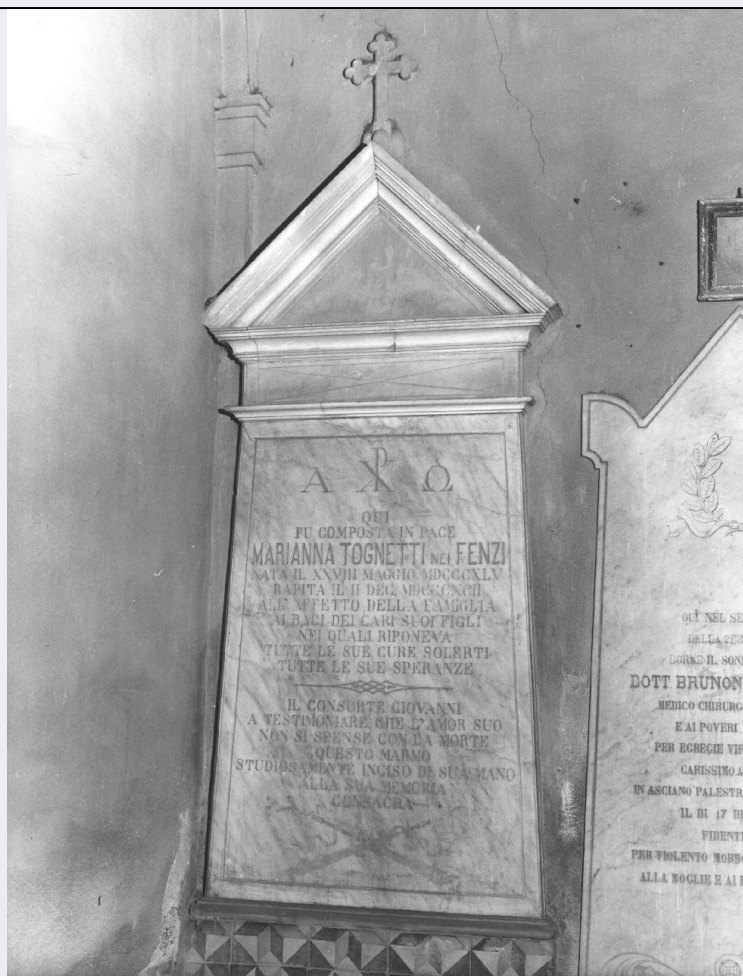 Α ☧ Ω
QUI
FU COMPOSTA IN PACE
MARIANNA TOGNETTI NEI FENZI
NATA IL XXVIII MAGGIO MDCCCXLV
RAPITA IL II DEC. MDCCCXCII
ALL'AFFETTO DELLA FAMIGLIA
AI BACI DEI CARI SUOI FIGLI
NEI QUALI RIPONEVA
TUTTE LE SUE CURE SOLERTI
TUTTE LE SUE SPERANZE
IL CONSORTE GIOVANNI
A TESTIMONIARE CHE L'AMOR SUO
NON SI SPENSE CON LA MORTE
QUESTO MARMO
STUDIOSAMENTE INCISO DI SUA MANO
ALLA SUA MEMORIA
CONSACRA
QUÌ NEL SE
DELLA TER
DORME IL SON
DOTT. BRUNON
MEDICO CHIRURG
E AI POVERI
PER EGREGIE VIR
CARISSIMO A
IN ASCIANO PALESTR
IL DI 17 DI
FIDENT
PER VIOLENTO MORBO
ALLA MOGLIE E AI